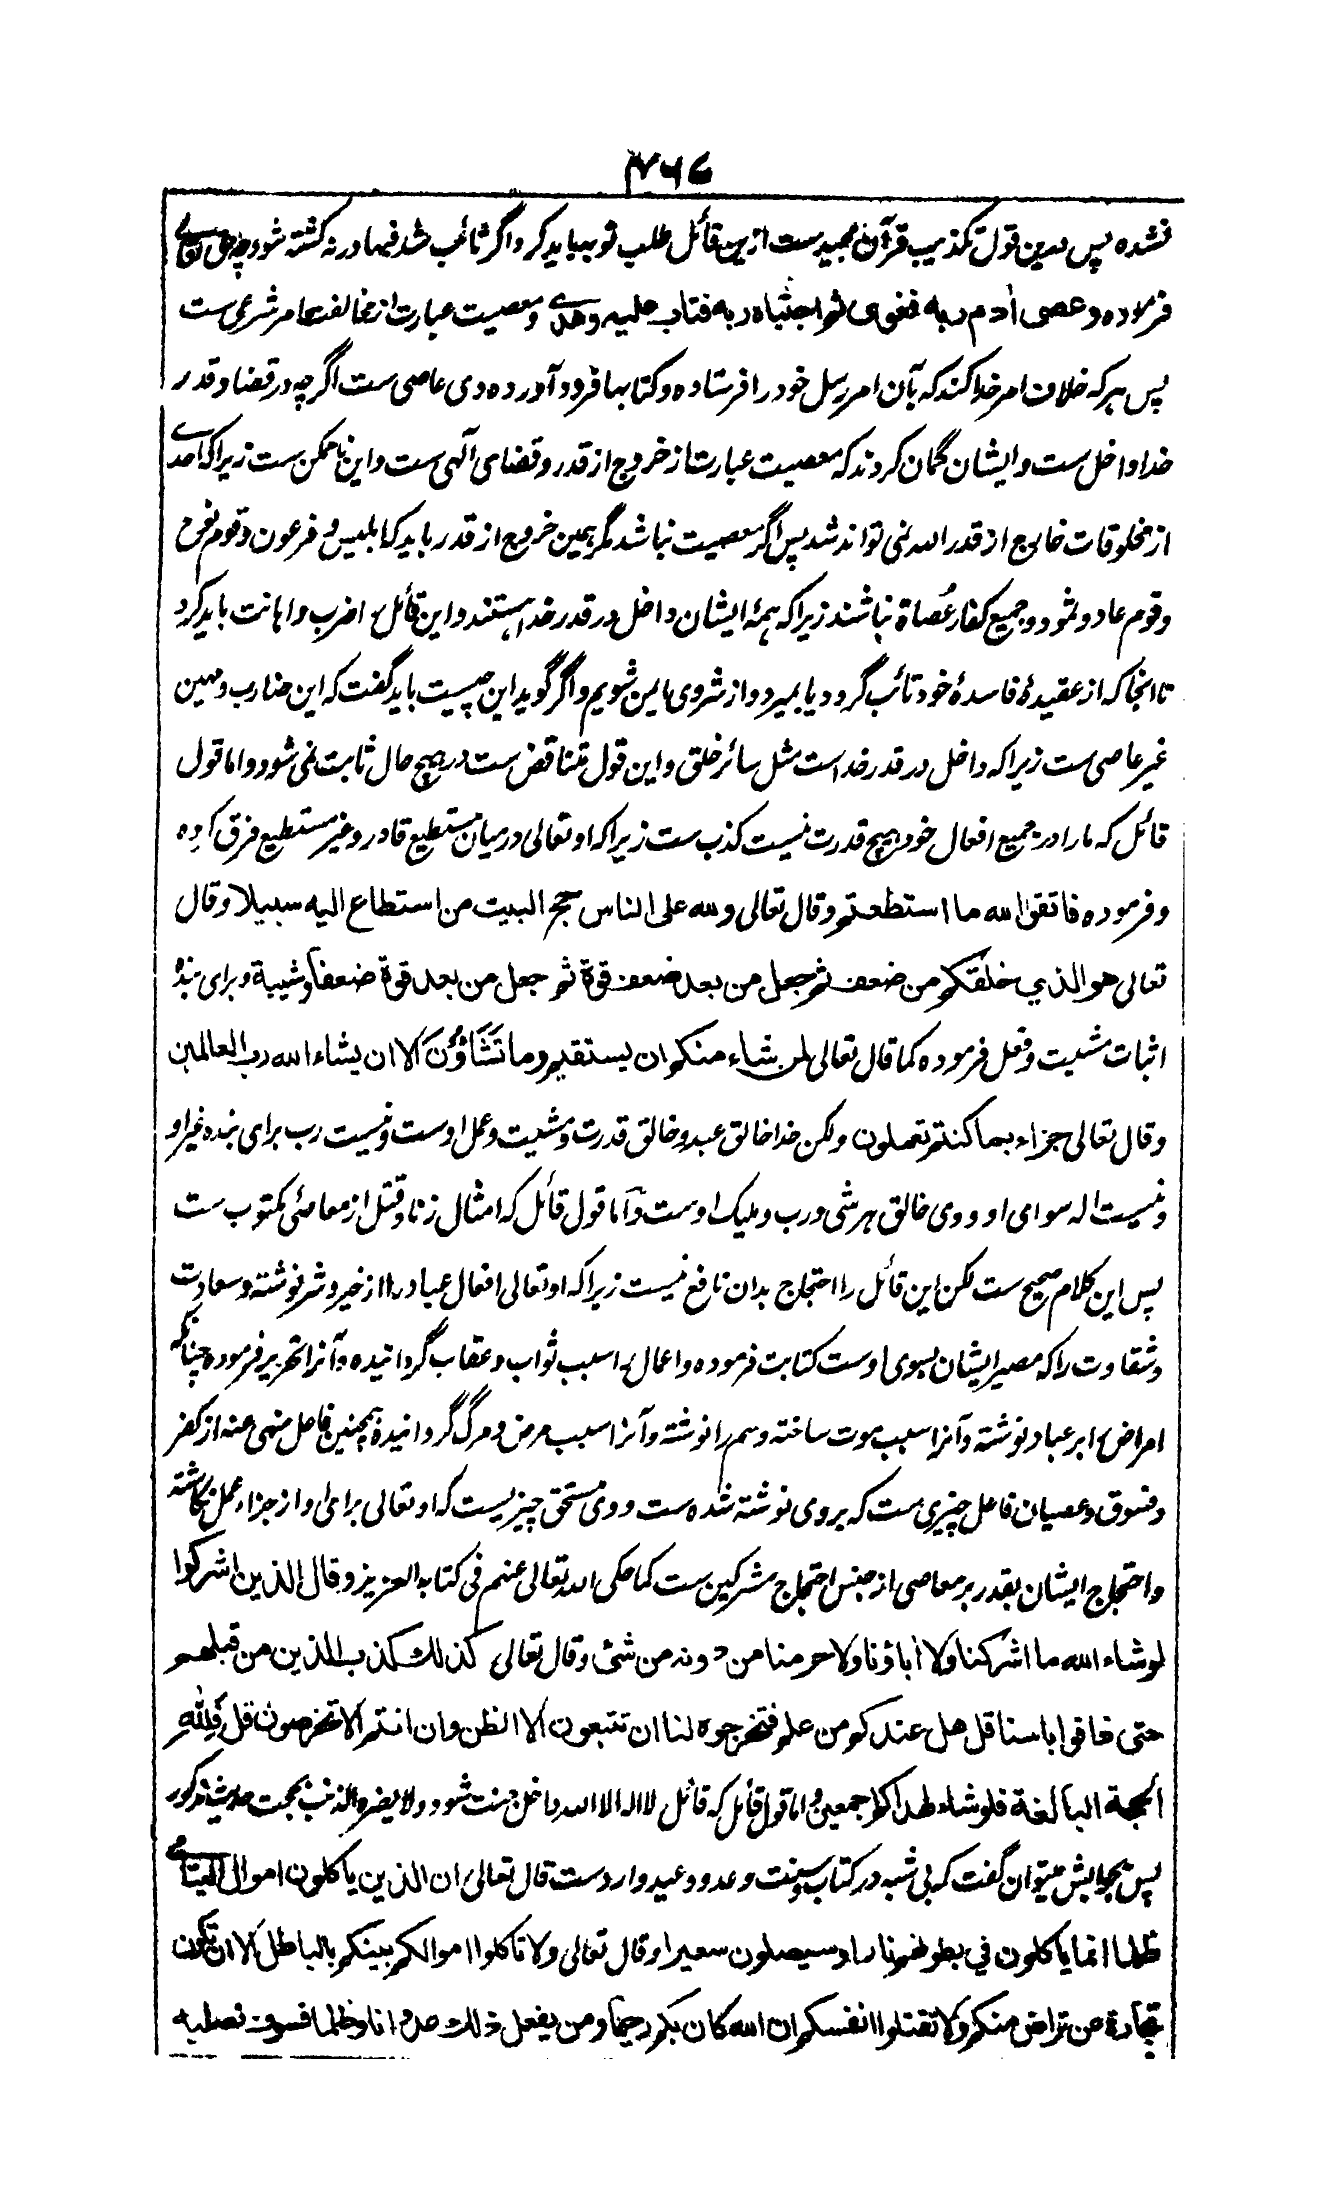 ۴۶۷
نشده پس بدین قول تکذیب قرآن مجید ست ازین قائل طلب توبه باید کرد اگر تائب شد فبها ورنه کشته شود چه حق تعالی
فرموده وعصی آدم ربه فغوی ثم اجتباه ربه فتاب علیه وهدی و معصیت عبارت از مخالفت امر شرعی ست
پس هر که خلاف امر خدا کند که بآن امر رسل خود را فرستاده و کتابها فرود آورده وی عاصی ست اگرچه در قضا و قدر
خدا داخل ست و ایشان گمان کردند که معصیت عبارت از خروج از قدر و قضای آلهی ست و این ناممکن ست زیرا که احدی
از مخلوقات خارج از قدر الله نمی تواند شد پس اگر معصیت نباشد مگر همین خروج از قدر باید که ابلیس و فرعون و قوم نوح
و قوم عاد و ثمود و جمیع کفار عُصاة نباشند زیرا که همهٔ ایشان داخل در قدر خدا هستند و این قائل را ضرب و اهانت باید کرد
تا آنجا که از عقیدهٔ فاسدهٔ خود تائب گردد یا بمیرد و از شر وی ما ایمن شویم و اگر گوید این چیست باید گفت که این ضارب و مهین
غیر عاصی ست زیرا که داخل در قدر خداست مثل سائر خلق و این قول متناقض ست در هیچ حال ثابت نمی شود و اما قول
قائل که ما را در جمیع افعال خود هیچ قدرت نیست کذب ست زیرا که او تعالی درمیان مستطیع قادر و غیر مستطیع فرق کرده
و فرموده فاتقوا الله ما استطعتم وقال تعالی ولله علی الناس حج البیت من استطاع الیه سبیلا وقال
تعالی هو الذي خلقکم من ضعف ثم جعل من بعد ضعف قوة ثم جعل من بعد قوة ضعفا وشیبة و برای بندهٔ
اثبات مشیت و فعل فرموده کما قال تعالی لمن شاء منکم ان یستقیم وما تَشَاؤُنَ الا ان یشاء الله رب العالمین
وقال تعالی جزاء بما کنتم تعملون ولکن خدا خالق عبد و خالق قدرت و مشیت و عمل اوست و نیست رب برای بنده غیر او
و نیست اله سوای او و وی خالق هر شی و رب و ملیک اوست و آما قول قائل که امثال زنا و قتل از معاصی مکتوب ست
پس این کلام صحیح ست لکن این قائل را احتجاج بدان نافع نیست زیرا که او تعالی افعال عباد را از خیر و شر نوشته و سعادت
و شقاوت را که مصیر ایشان بسوی اوست کتابت فرموده و اعمال را سبب ثواب و عقاب گردانیده و آنرا تحریر فرموده چنانکه
امراض را بر عباد نوشته و آنرا سبب موت ساخته و سم را نوشته و آنرا سبب مرض و مرگ گردانیده همچنین فاعل منهی عنه از کفر
و فسوق و عصیان فاعل چیزی ست که بروی نوشته شده ست و وی مستحق چیزیست که او تعالی برای او از جزاء عمل نگاشته
و احتجاج ایشان بقدر بر معاصی از جنس احتجاج مشرکین ست کما حکی الله تعالی عنهم فی کتابه العزیز وقال الذین اشرکوا
لو شاء الله ما اشرکنا ولا آباؤنا ولا حرمنا من دونه من شئ وقال تعالی کذلك کذب الذین من قبلهم
حتی ذاقوا باسنا قل هل عندکم من علم فتخرجوه لنا ان تتبعون الا الظن وان انتم الا تخرصون قل فللّٰه
الحجة البالغة فلو شاء لهداکم اجمعین و اما قول قائل که قائل لا اله الا الله داخل جنت شود ولا یضره الذنب بحجت حدیث مذکور
پس بجوابش میتوان گفت که بی شبه در کتاب و سنت وعد و وعید وارد ست قال تعالی ان الذین یاکلون اموال الیتامی
ظلما انما یاکلون في بطونهم نارا وسیصلون سعیرا وقال تعالی ولا تاکلوا اموالکم بینکم بالباطل الا ان تکون
تجارة عن تراض منکم ولا تقتلوا انفسکم ان الله کان بکم رحیما ومن یفعل ذلك عدوانا وظلما فسوف نصلیه